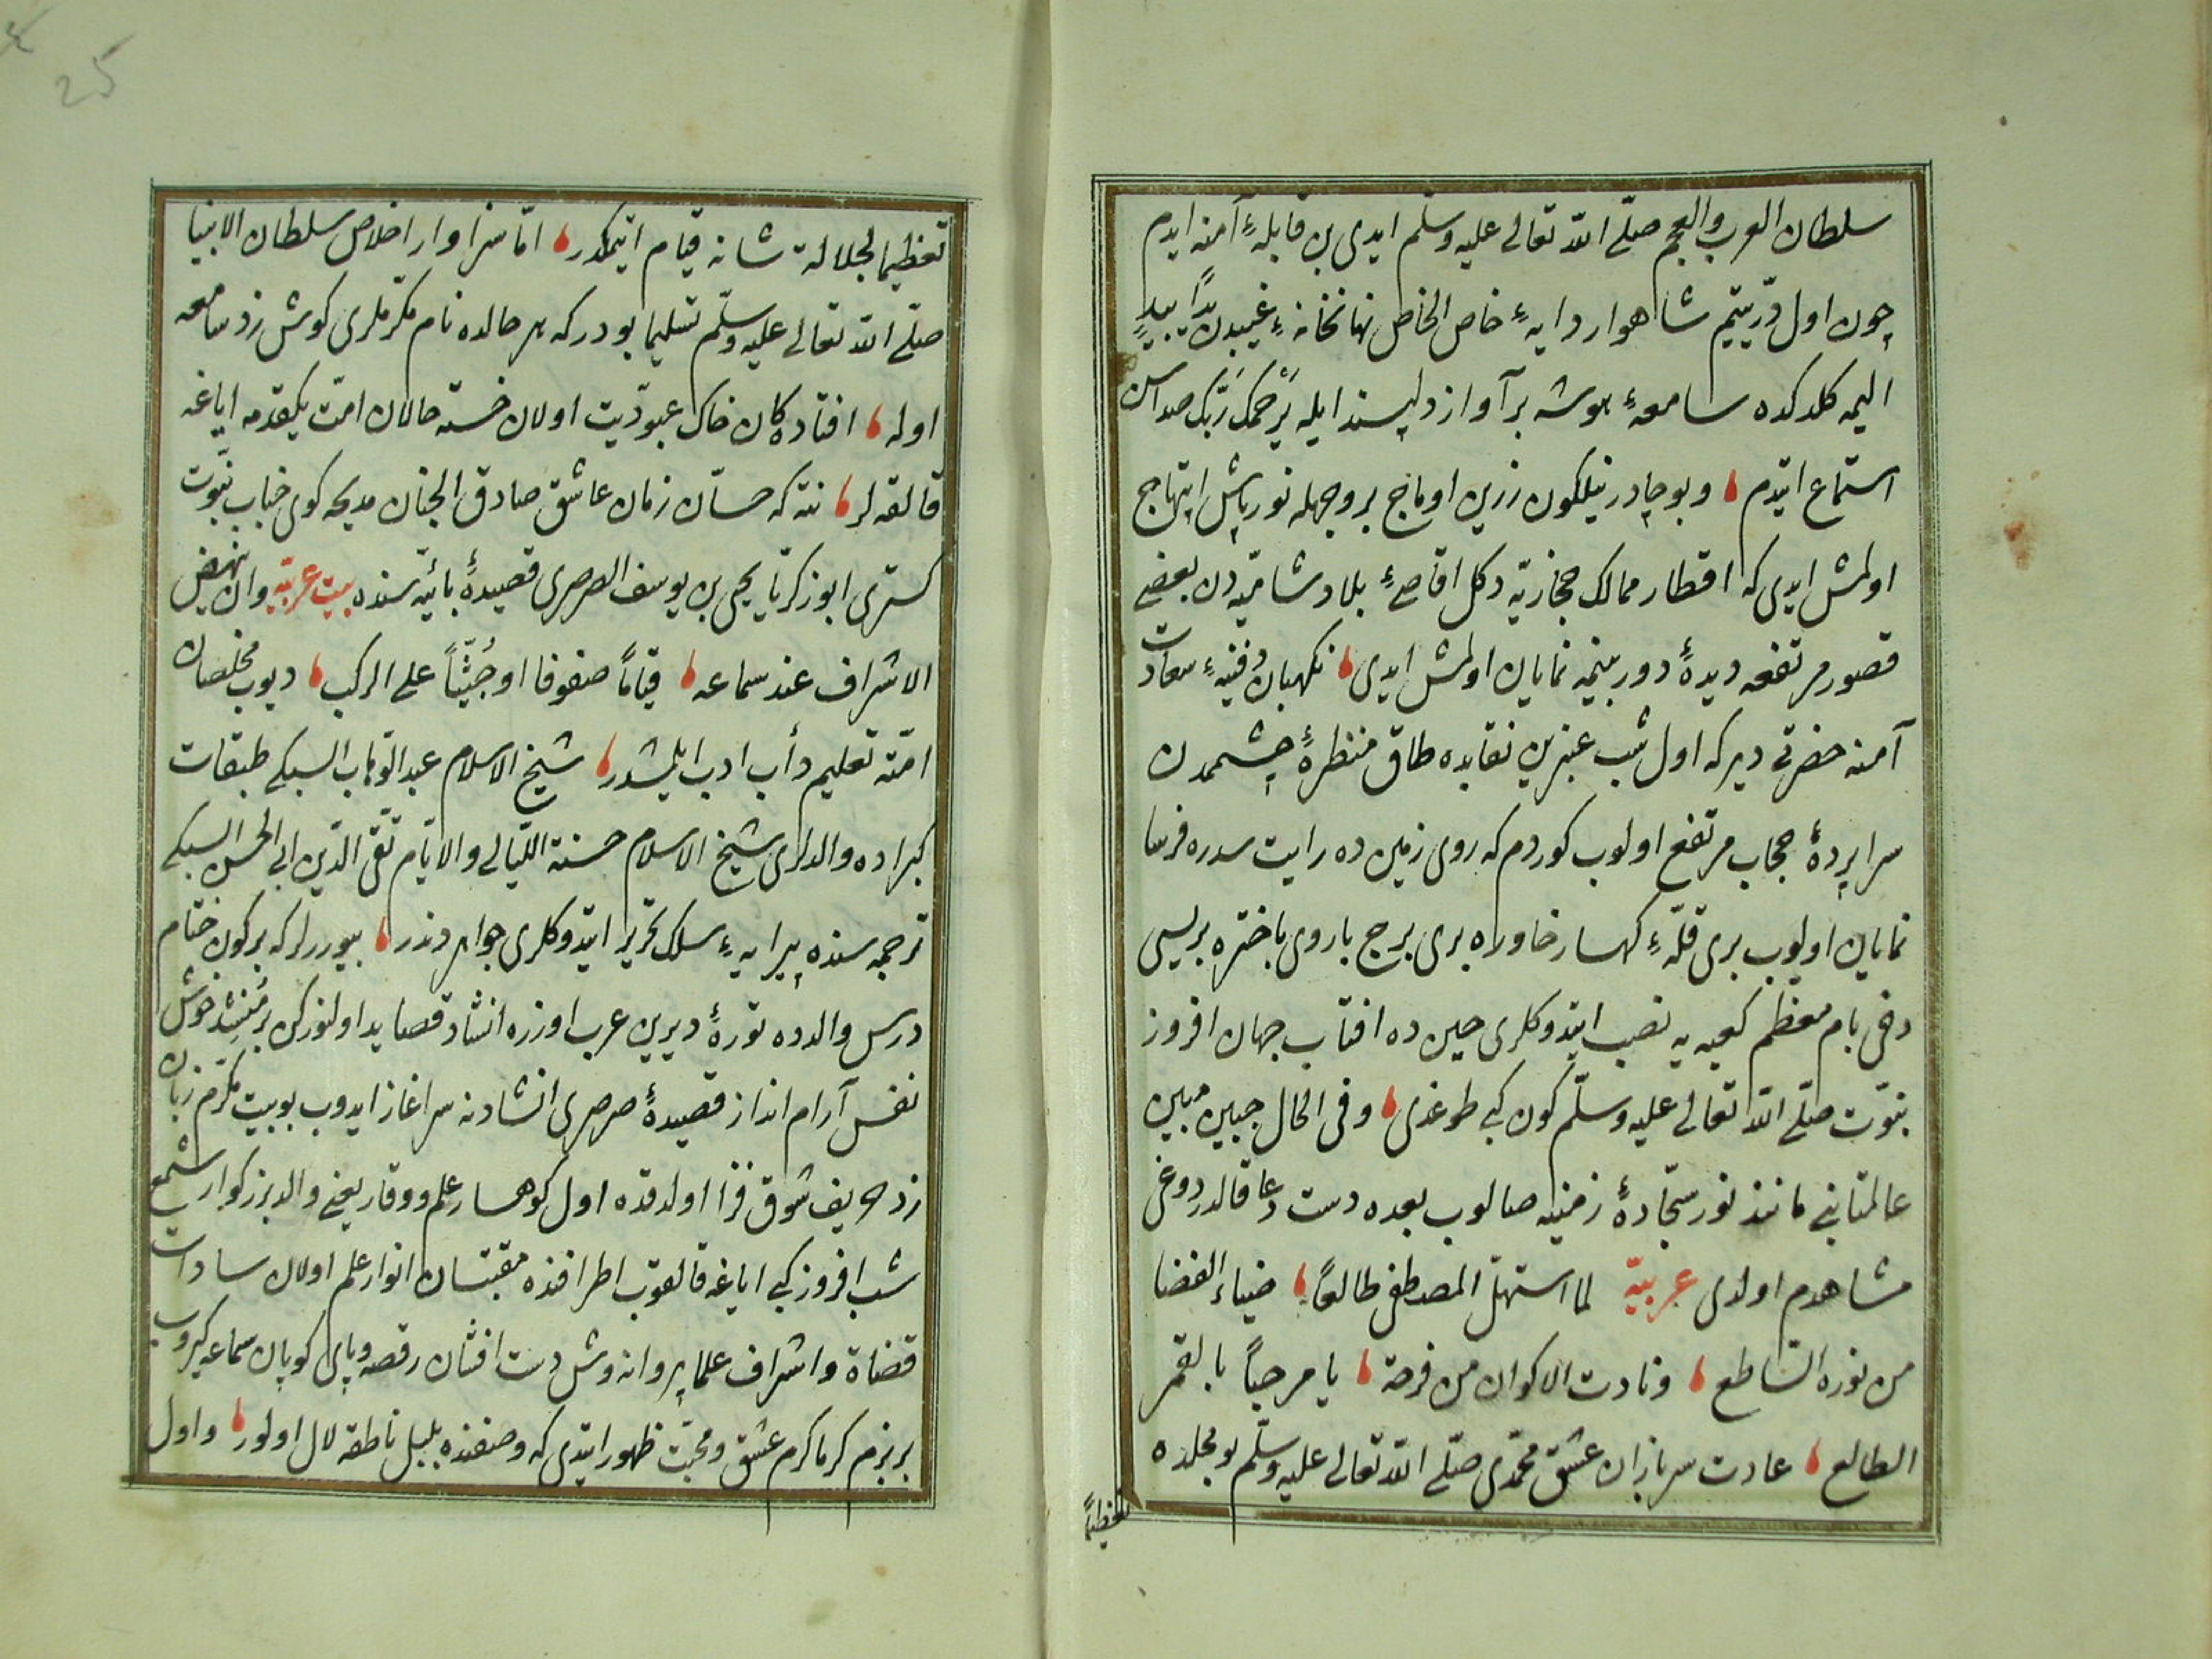 سلطان العرب والعجم صلّی الله تعالی علیه وسلّم ایدی بن قابلهٔ آمنه ایدم
چون اول درّ یتیم شاهوار دایهٔ خاص الخاص نهانخانهٔ غیبدن یداً بیدٍ
الیمه کلدکده سامعهٔ هوشه بر آواز دلپسند ایله یَرْحمک رَبّک صداسن
استماع ایتدم ، وبو چادر نیلکون زرین اوماج بر وجهله نورپاش ابتهاج
اولمش ایدی که اقطار ممالک حجازیّه دکل اقاصیٔ بلاد شامیّه دن بعضی
قصور مرتفعه دیدهٔ دوربینمه نمایان اولمش ایدی ، نکهبان دفینهٔ سعادت
آمنه حضرتی دیر که اول شب عنبرین نقابده طاق منظرهٔ چشممدن
سراپردهٔ حجاب مرتفع اولوب کوردم که روی زمین ده رایت سدره فرسا
نمایان اولیوب بری قلّهٔ کهسار خاوره بری برج باروی باختره بریسی
دخی بام معظم کعبه یه نصب ایتدوکلری حین ده افتاب جهان افروز
نبوّت صلّی الله تعالی علیه وسلّم کون کبی طوغدی ، وفی الحال جبین مبین
عالمتابنی مانند نور سجّادهٔ زمینه صالوب بعده دست دعا قالدردوغی
مشاهدم اولدی عربیّه لما استهلّ المصطفی طالعًا ، ضیاء الفضا
من نوره الساطع ، ونادت الاکوان من فرحة ، یا مرحباً بالقمر
الطالع ، عادت سربازان عشق محمّدی صلّی الله تعالی علیه وسلّم بو محلده
تعظیماً
25
تعظیما لجلالة شانه قیام ایتمکدر ، امّا سزاوار اخلاص سلطان الانبیا
صلّی الله تعالی علیه وسلّم تسلیما بودر که هر حالده نام مکرّملری کوش زد سامعه
اوله ، افتاده کان خاک عبودّیت اولان خسته حالان امّت یکقدمه ایاغه
قالقه لر ، نته که حسّان زمان عاشق صادق الجنان مدیحه کوی جناب نبوّت
کستری ابوزکریّا یحیی بن یوسف الصرصری قصیدهٔ بائیّه سنده بیت عربیّه وان ینهض
الاشراف عند سماعه ، قیاماً صفوفا او جُثیّاً علی الرکب ، دیوب مخلصان
امّته تعلیم دأب ادب ایلمشدر ، شیخ الاسلام عبد الوّهاب السبکی طبقات
کبراده والدلری شیخ الاسلام حسنة اللّیالی والایّام تقیّ الدّین ابی الحسن السبکی
ترجمه سنده پیرایهٔ سلک تحریر ایتدوکلری جواهردندر ، بیوررلر که بر کون ختام
درس والدده تورهٔ دیرین عرب اوزره انشاد قصاید اولنورکن بر مُنشِد خوش
نفس آرام انداز قصیدهٔ صرصری انشادنه سراغاز ایدوب بو بیت مکرّم زبان
زد حریف شوق فزا اولدقده اول کوهسار علم ووقار یعنی والد بزرکوار شمع
شب افروز کبی ایاغه قالقوب اطرافنده مقتبسان انوار علم اولان سادات
قضاة واشراف علما پروانه وش دست افشان رقصه وپای کوپان سماعه کیروب
بر بزم کرما کرم عشق ومحبّت ظهور ایتدی که وصفنده بلبل ناطقه لال اولور ، واول